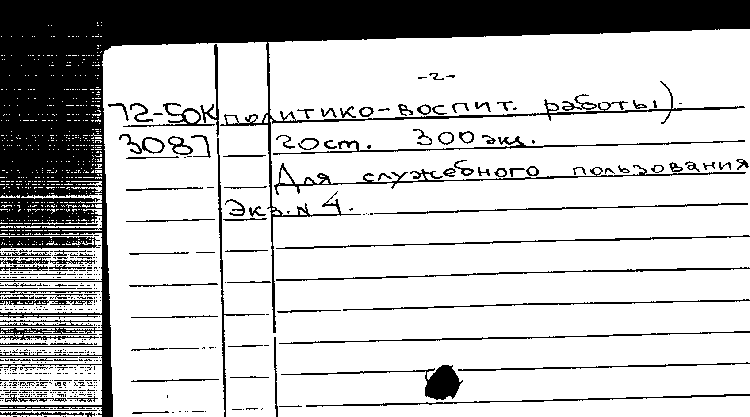 -2-
72-50К политико-воспит. работы).
3087 20ст. 300экз.
Для служебного пользования
Экз.N 4.